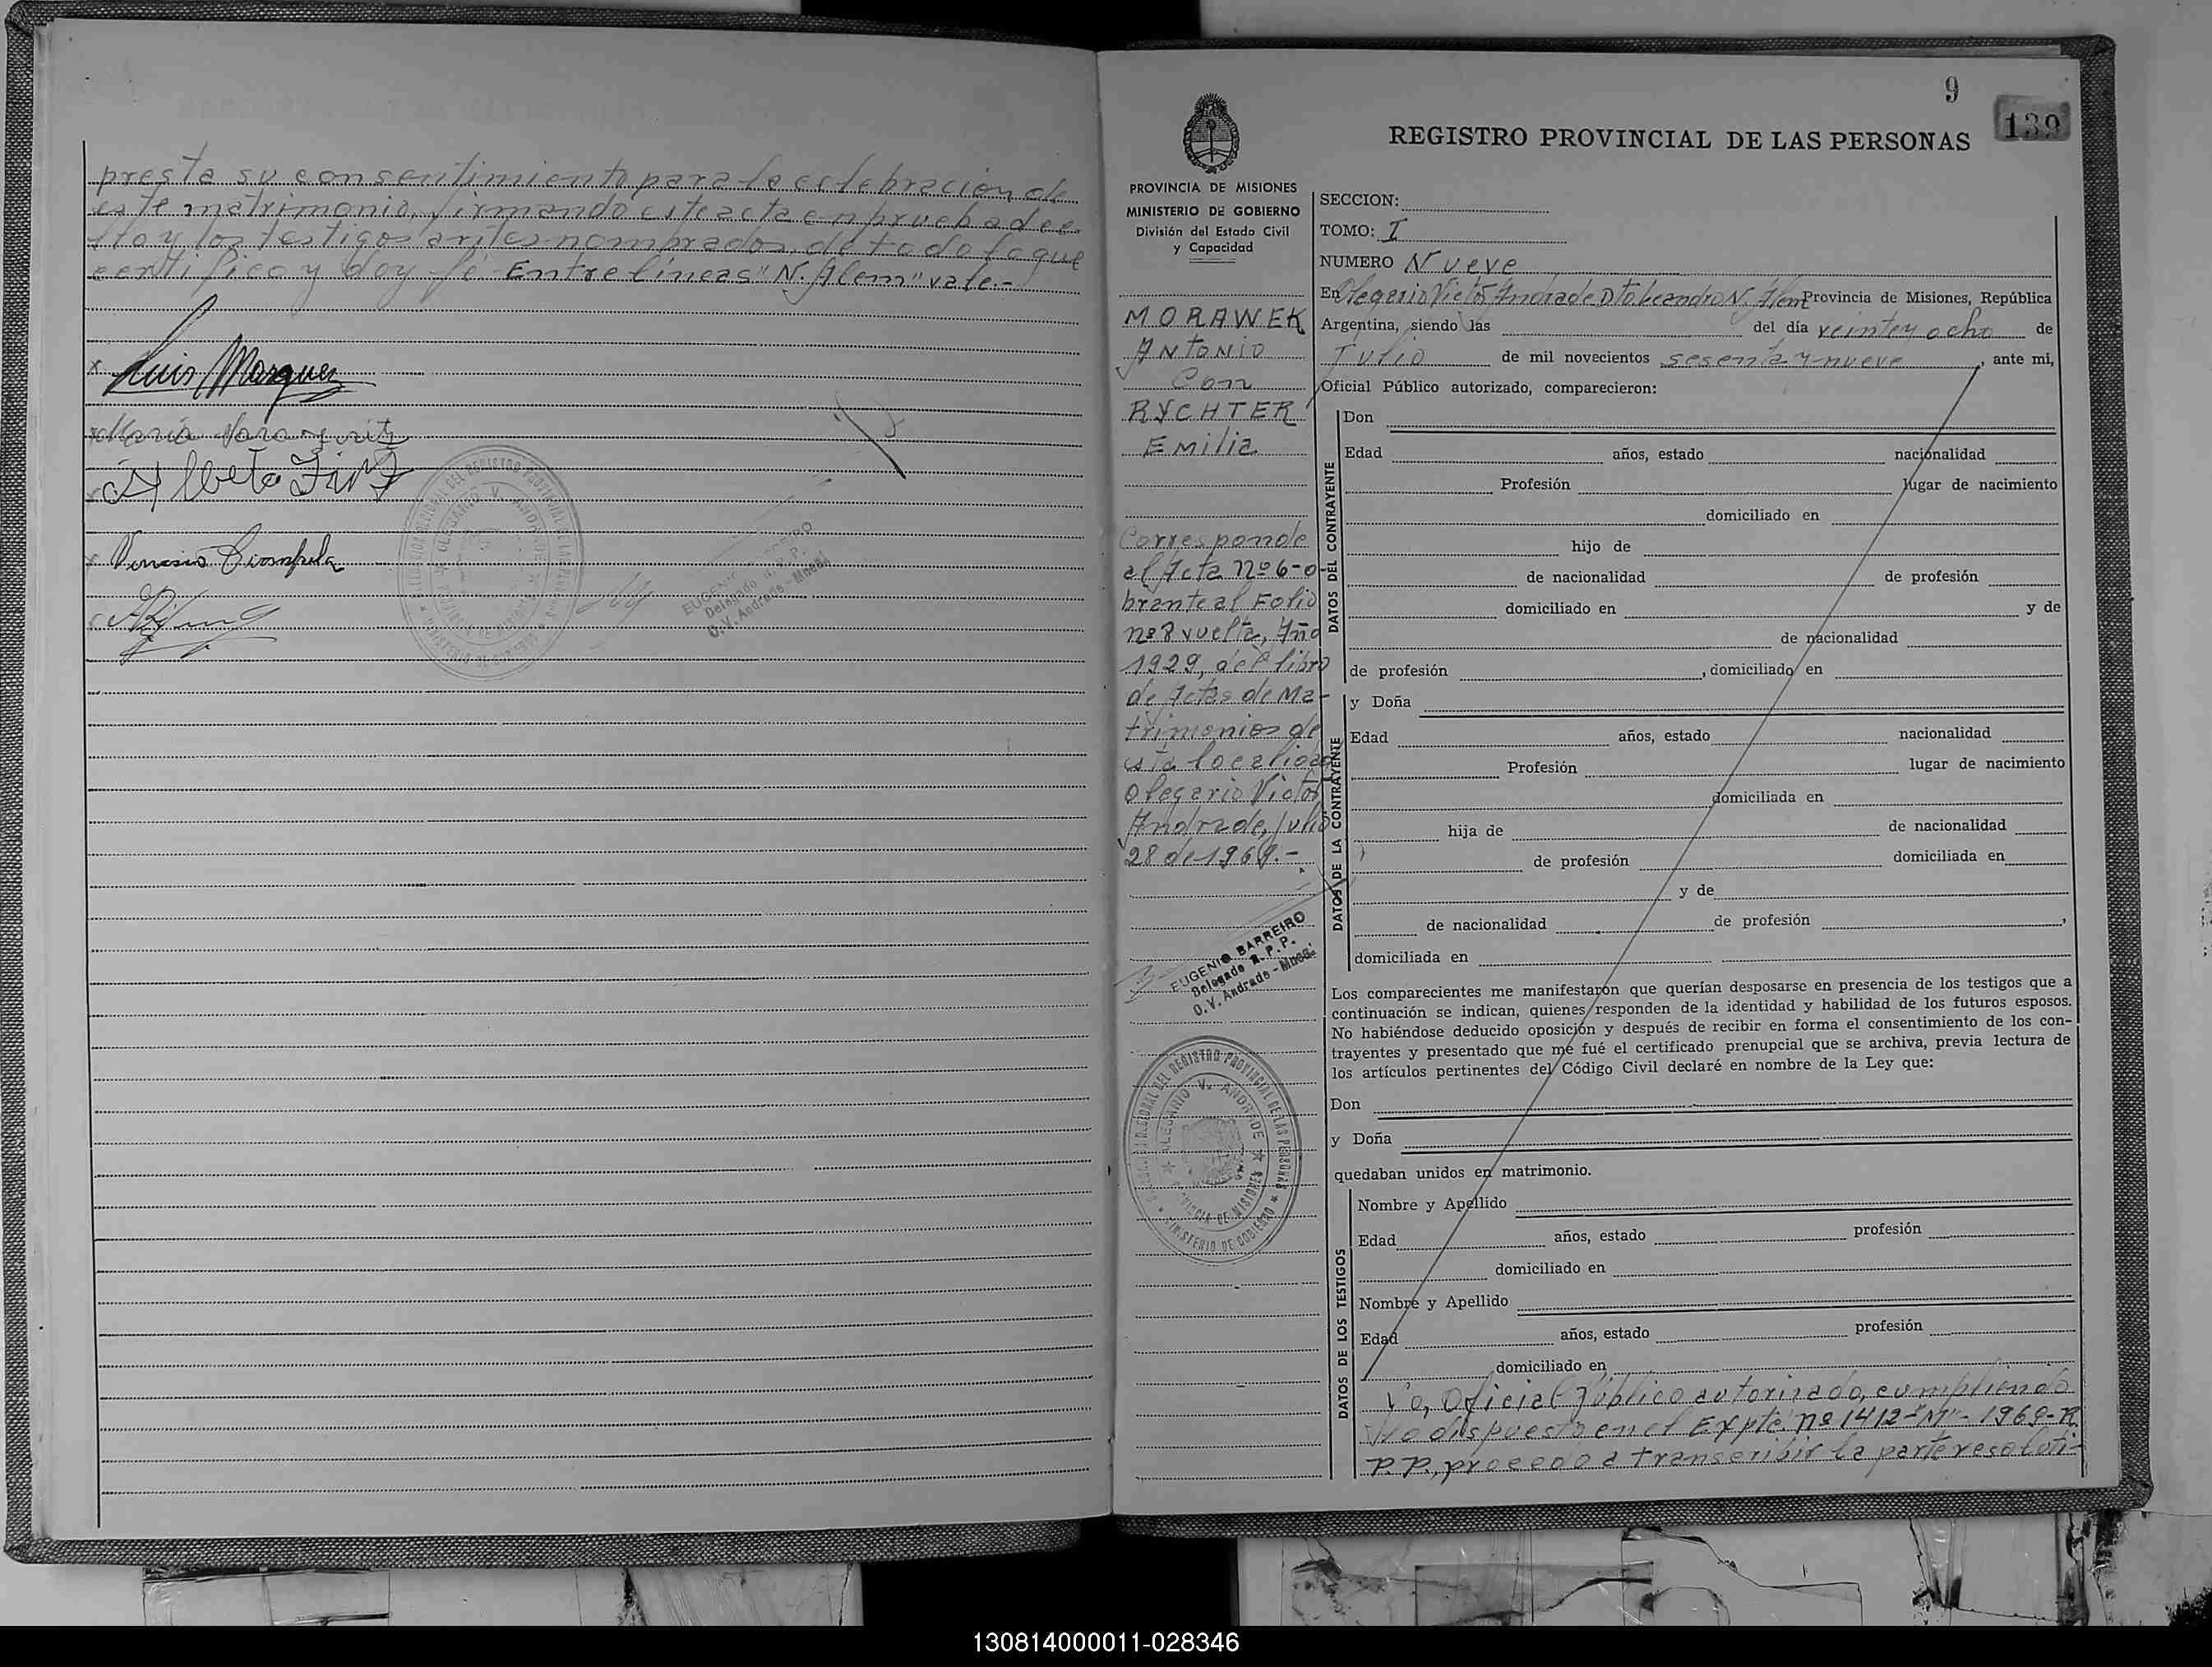 presta su consentimiento para la celebración de
este matrimonio, firmando este acta en prueba de e-
llo y los testigos antes nombrados, de todo lo que
certifico y doy fé Entre líneas "N. Alem" vale.-
x
Luis Marquez
x María
x Alberto
x
EUGENIO BARREIRO
Delegado R.P.P.
O.V. Andrade - Mnes.
9
139
REGISTRO PROVINCIAL DE LAS PERSONAS
PROVINCIA DE MISIONES
MINISTERIO DE GOBIERNO
División del Estado Civil
y Capacidad
MORAWEK
Antonio
Con
RYCHTER
Emilia
Corresponde
al Acta nº 6-o-
brante al Folio
nº 8 vuelta, Año
1929, del libro
de Actas de Ma-
trimonios de
esta localidad
Olegario Victor
Andrade, Julio
28 de 1969.-
EUGENIO BARREIRO
Delegado R.P.P.
O.V. Andrade - Mnes.
DELEGACION REGIONAL DEL REGISTRO PROVINCIAL DE LAS PERSONAS
OLEGARIO V. ANDRADE
PROVINCIA DE MISIONES
MINISTERIO DE GOBIERNO
SECCION:
TOMO: I
NUMERO Nueve
En Olegario Victor Andrade Dto Leandro N. Alem Provincia de Misiones, República
Argentina, siendo las del día veintey ocho de
Julio de mil novecientos sesenta y nueve, ante mi,
Oficial Público autorizado, comparecieron:
DATOS DEL CONTRAYENTE
Don
Edad años, estado nacionalidad
Profesión lugar de nacimiento
domiciliado en
hijo de
de nacionalidad de profesión
domiciliado en y de
de nacionalidad
de profesión , domiciliado en
DATOS DE LA CONTRAYENTE
y Doña
Edad años, estado nacionalidad
Profesión lugar de nacimiento
domiciliada en
hija de de nacionalidad
de profesión domiciliada en
y de
de nacionalidad de profesión ,
domiciliada en
Los comparecientes me manifestaron que querían desposarse en presencia de los testigos que a
continuación se indican, quienes responden de la identidad y habilidad de los futuros esposos.
No habiéndose deducido oposición y después de recibir en forma el consentimiento de los con-
trayentes y presentado que me fué el certificado prenupcial que se archiva, previa lectura de
los artículos pertinentes del Código Civil declaré en nombre de la Ley que:
Don
y Doña
quedaban unidos en matrimonio.
DATOS DE LOS TESTIGOS
Nombre y Apellido
Edad años, estado profesión
domiciliado en
Nombre y Apellido
Edad años, estado profesión
domiciliado en
Yo, Oficial Público autorizado, cumpliendo
lo dispuesto en el Expte. nº 1412-"M"-1969-R.
P.P., procedo a transcribir la parte resoluti-
130814000011-028346